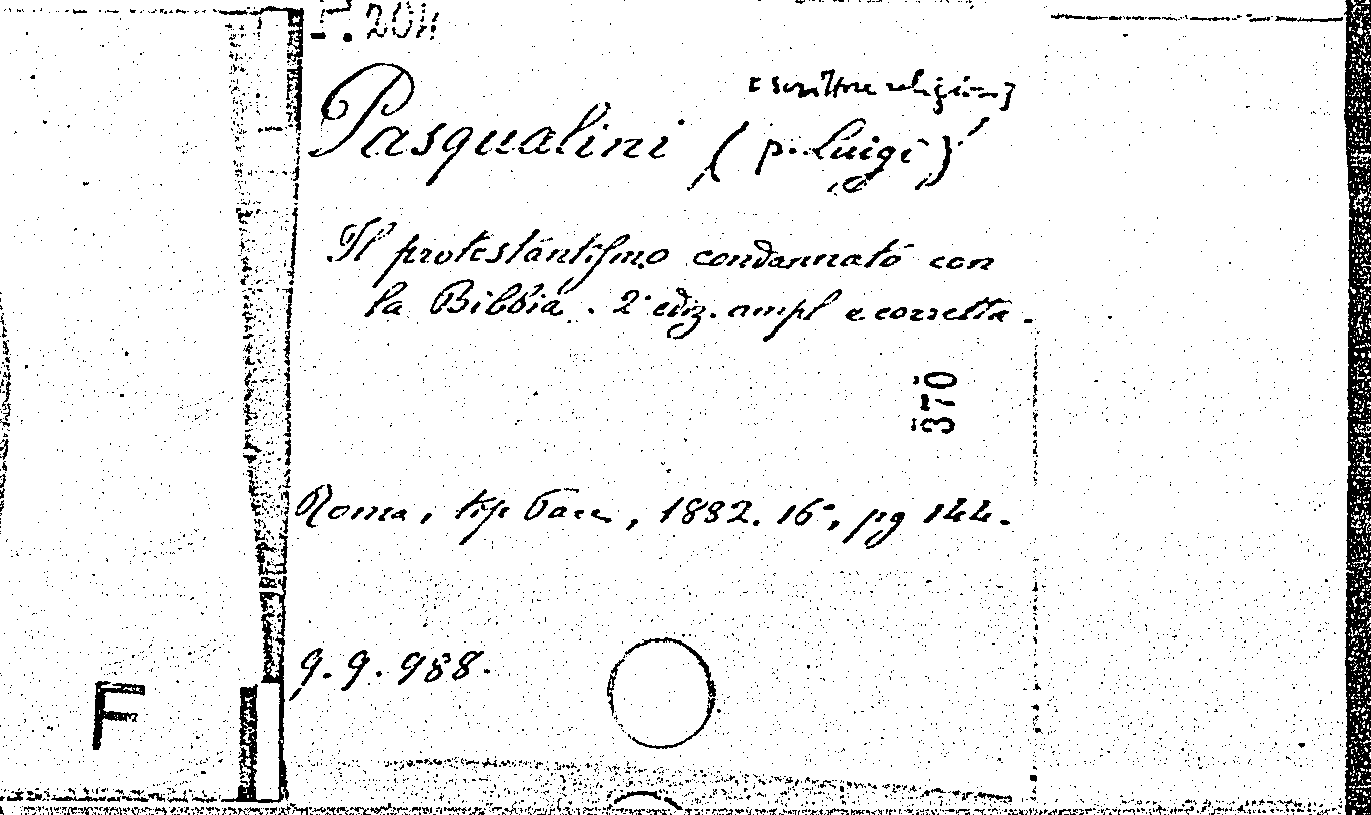 F. 204
[scrittore religioso]
Pasqualini (p. Luigi)
Il protestantismo condannato con
la Bibbia. 2ª ediz. ampl e corretta.
370
Roma, tip Pace, 1882. 16°, pg 144.
9.9.988.
F